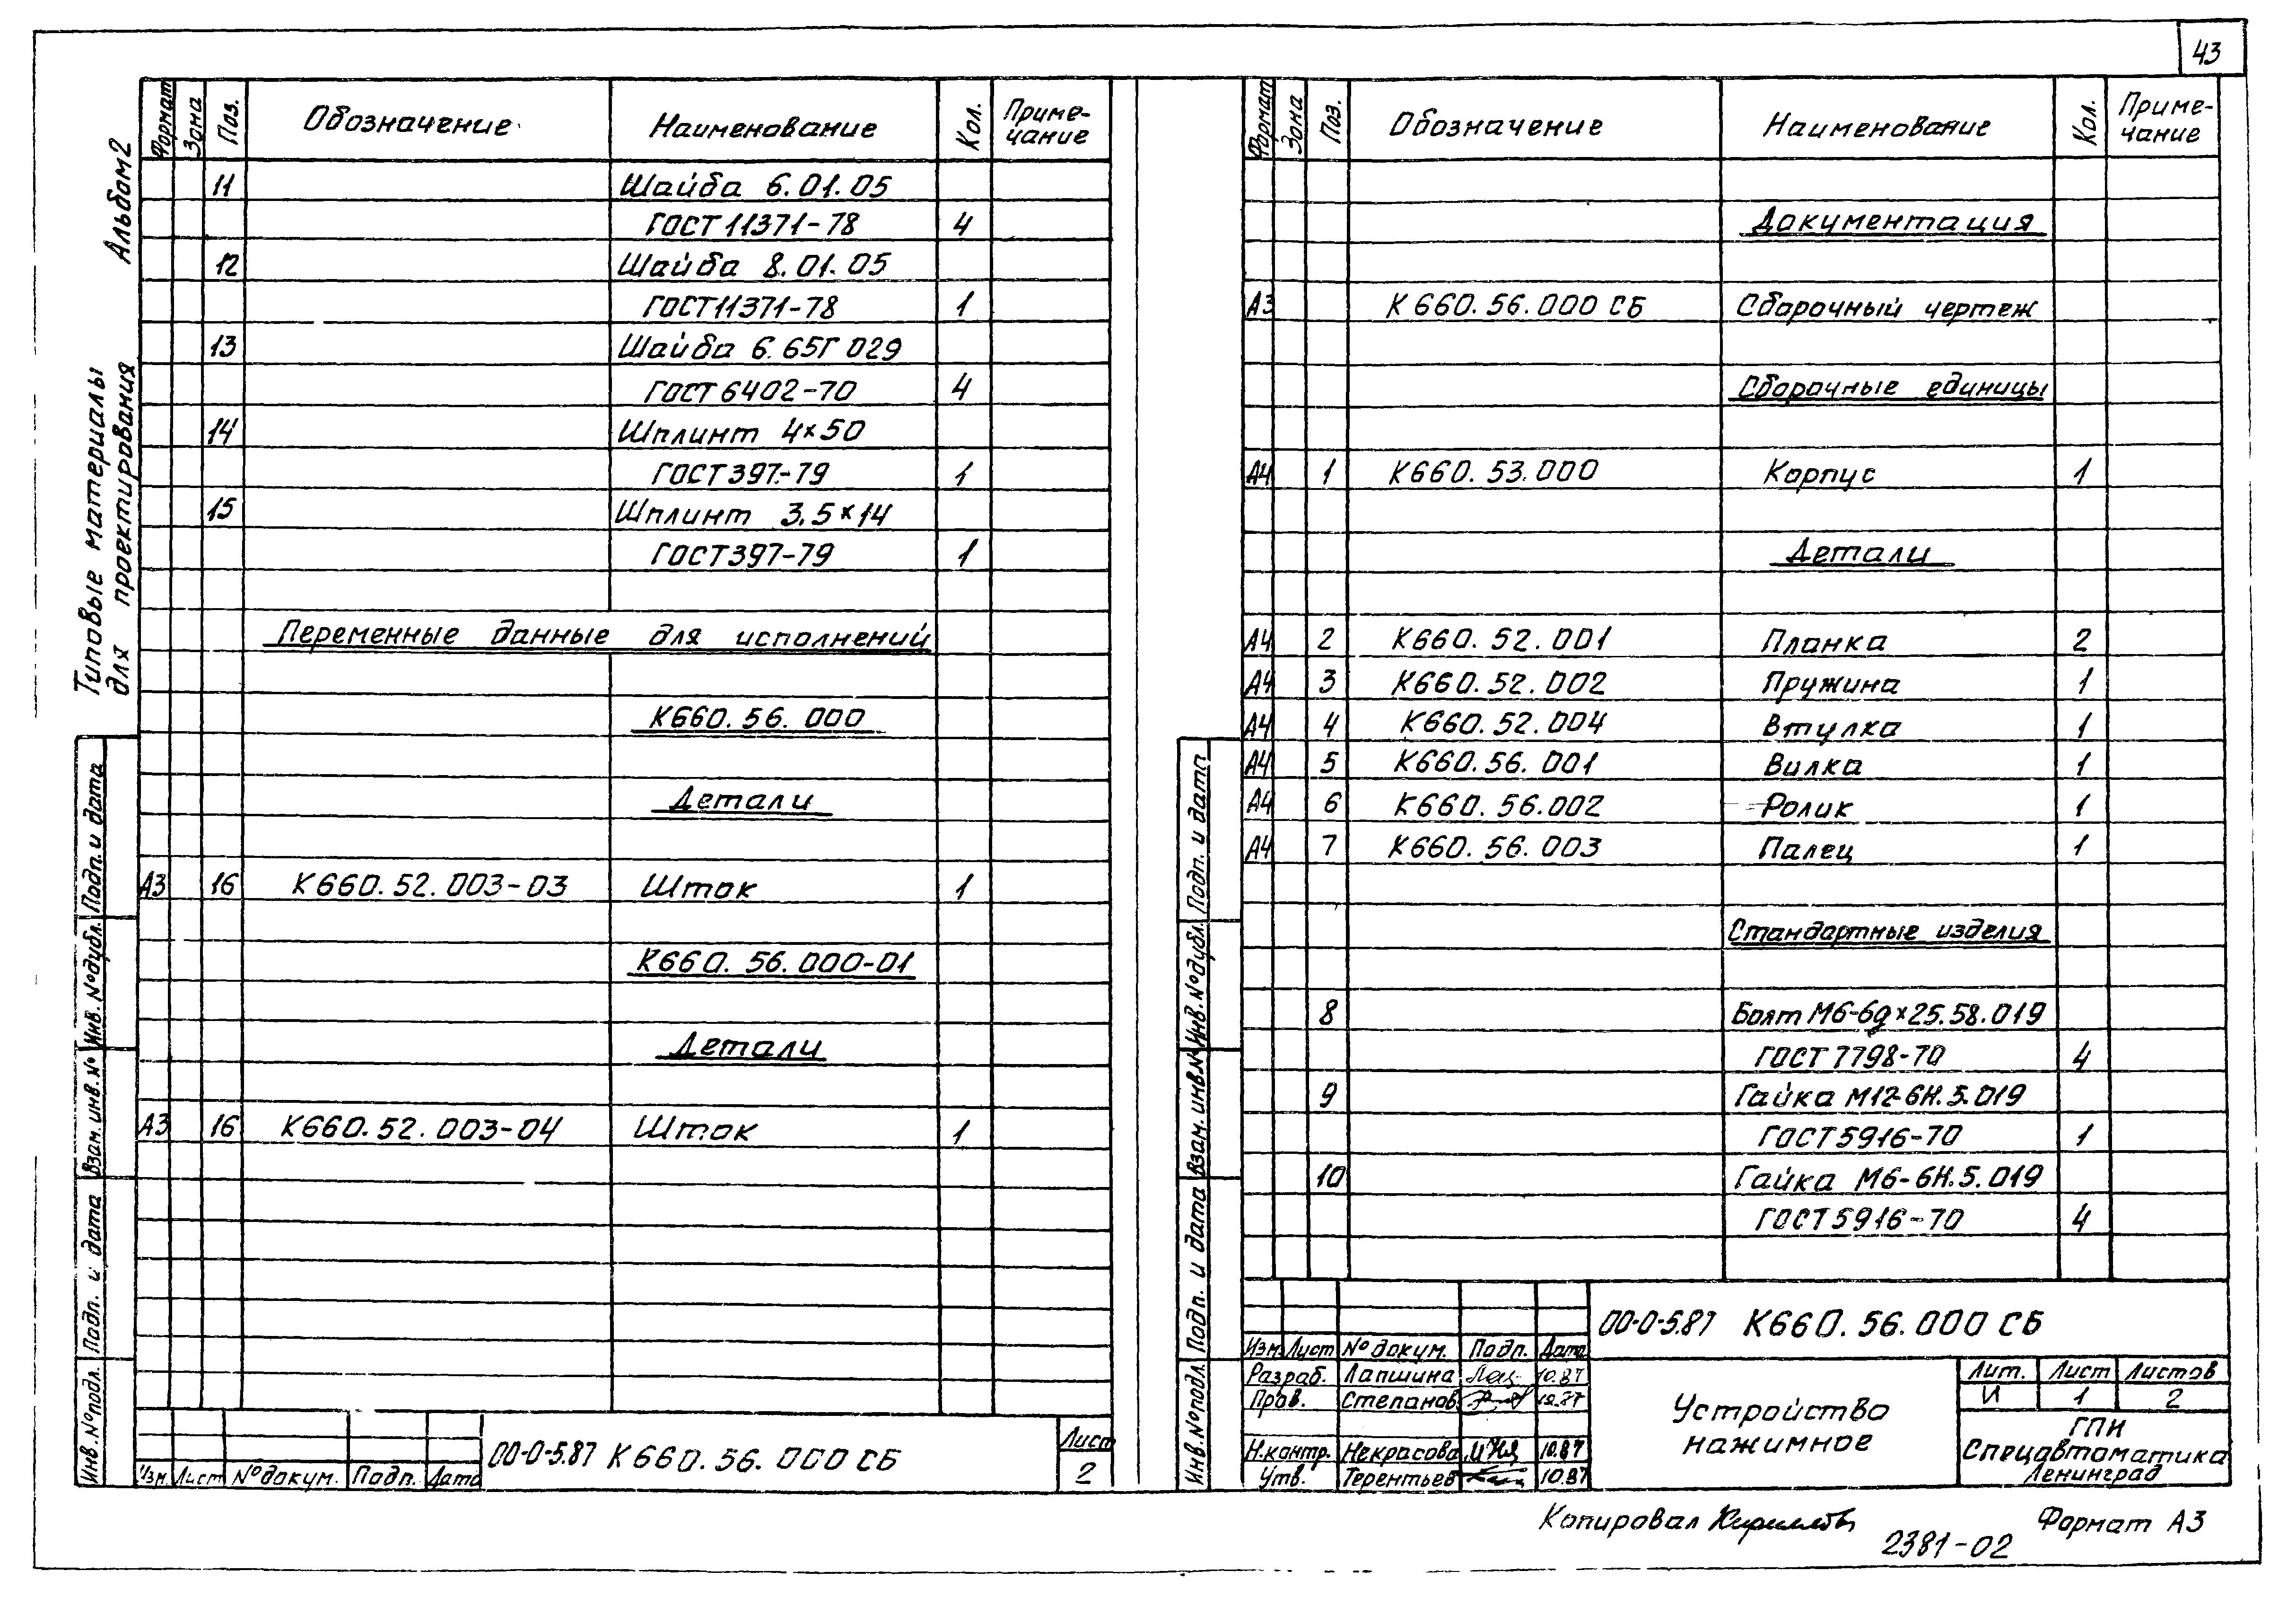 43
Альбом 2
Типовые материалы
для проектирования
Формат Зона Поз. Обозначение Наименование Кол. Приме-
чание
11 Шайба 6.01.05
ГОСТ 11371-78 4
12 Шайба 8.01.05
ГОСТ 11371-78 1
13 Шайба 6.65Г 029
ГОСТ 6402-70 4
14 Шплинт 4×50
ГОСТ 397-79 1
15 Шплинт 3,5×14
ГОСТ 397-79 1
Переменные данные для исполнений
К660.56.000
Детали
А3 16 К660.52.003-03 Шток 1
К660.56.000-01
Детали
А3 16 К660.52.003-04 Шток 1
Подп. и дата
Инв. № дубл.
Взам. инв. №
Подп. и дата
Инв. № подл.
00-0-5.87 К660.56.000 СБ
Лист
2
Изм. Лист № докум. Подп. Дата
Формат Зона Поз. Обозначение Наименование Кол. Приме-
чание
Документация
А3 К660.56.000 СБ Сборочный чертеж
Сборочные единицы
А4 1 К660.53.000 Корпус 1
Детали
А4 2 К660.52.001 Планка 2
А4 3 К660.52.002 Пружина 1
А4 4 К660.52.004 Втулка 1
А4 5 К660.56.001 Вилка 1
А4 6 К660.56.002 Ролик 1
А4 7 К660.56.003 Палец 1
Стандартные изделия
8 Болт М6-6g×25.58.019
ГОСТ 7798-70 4
9 Гайка М12-6Н.5.019
ГОСТ 5916-70 1
10 Гайка М6-6Н.5.019
ГОСТ 5916-70 4
Подп. и дата
Инв. № дубл.
Взам. инв. №
Подп. и дата
Инв. № подл.
00-0-5.87 К660.56.000 СБ
Изм. Лист № докум. Подп. Дата
Разраб. Лапшина 10.87
Пров. Степанов 10.87
Н.контр. Некрасова 10.87
Утв. Терентьев 10.87
Устройство
нажимное
Лит. Лист Листов
И 1 2
ГПИ
Спецавтоматика
Ленинград
Копировал
Формат А3
2381-02